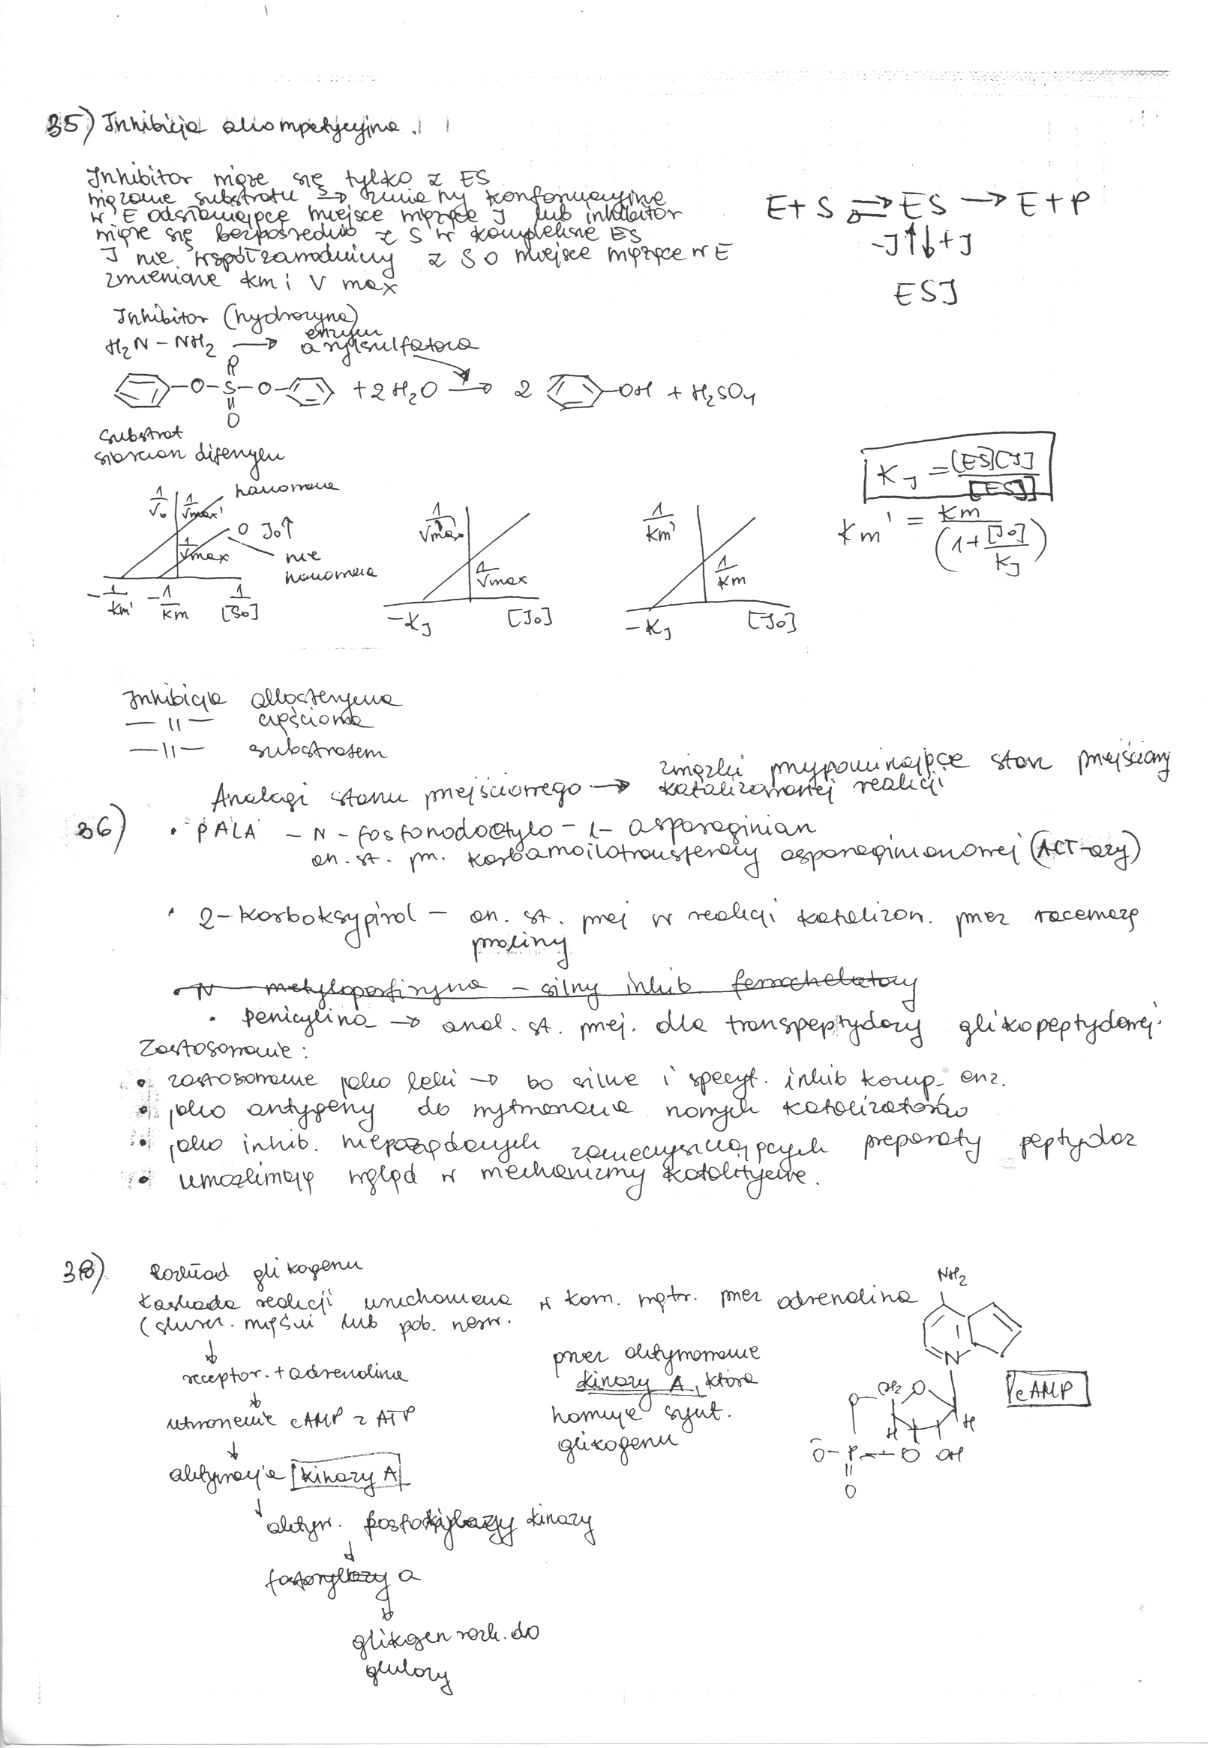 35) Inhibicja akompetycyjna.
Inhibitor wiąże się tylko z ES
wiązanie substratu → zmiany konformacyjne
w E odsłaniające miejsce wiążące J lub inhibitor
wiąże się bezpośrednio z S w kompleksie ES
J nie współzawodniczy z S o miejsce wiążące w E
zmienione Km i V max
E + S ⇌ ES → E + P
-J ↑↓ +J
ESJ
Inhibitor (hydrazyna)
H₂N – NH₂ → enzym
arylsulfataza
–O–S–O– + 2 H₂O → 2 –OH + H₂SO₄
O
substrat
siarczan difenylu
K_J = [ES][J] / [ESJ]
Km' = Km / (1 + [J₀] / K_J)
1/V₀ 1/Vmax' hamowana
J₀↑
1/Vmax nie
hamowana
-1/Km' -1/Km 1/[S₀]
1/Vmax' 1/Vmax
-K_J [J₀]
1/Km' 1/Km
-K_J [J₀]
Inhibicja allosteryczna
—〃— częściowa
—〃— substratem
Analogi stanu przejściowego → związki przypominające stan przejściowy
katalizowanej reakcji
36) • PALA – N – fosfonoacetylo – L – asparaginian
an. st. prz. karbamoilotransferazy asparaginianowej (ACT-azy)
• 2-karboksypirol – an. st. przej w reakcji katalizow. przez racemazę
proliny
• N – metyloporfiryna – silny inhib ferrochelatazy
• penicylina → anal. st. przej. dla transpeptydazy glikopeptydowej.
Zastosowanie:
• zastosowanie jako leki → bo silne i specyf. inhib komp. enz.
• jako antygeny do wytwarzania nowych katalizatorów
• jako inhib. niepożądanych zanieczyszczających preparaty peptydaz
• umożliwiają wgląd w mechanizmy katalityczne.
38) Rozkład glikogenu
kaskada reakcji uruchomiona w kom. wątr. przez adrenalina
(skurcz. mięśni lub pob. nerw.
↓
receptor. + adrenalina
↓
utworzenie cAMP z ATP
↓
aktywacja kinazy A
↓
aktyw. fosforylazy kinazy
↓
fosforylazy a
↓
glikogen rozk. do
glukozy
przez aktywowanie
kinazy A, która
hamuje synt.
glikogenu
NH₂
N
CH₂ O
O
H H
O⁻ – P – O OH
O
cAMP